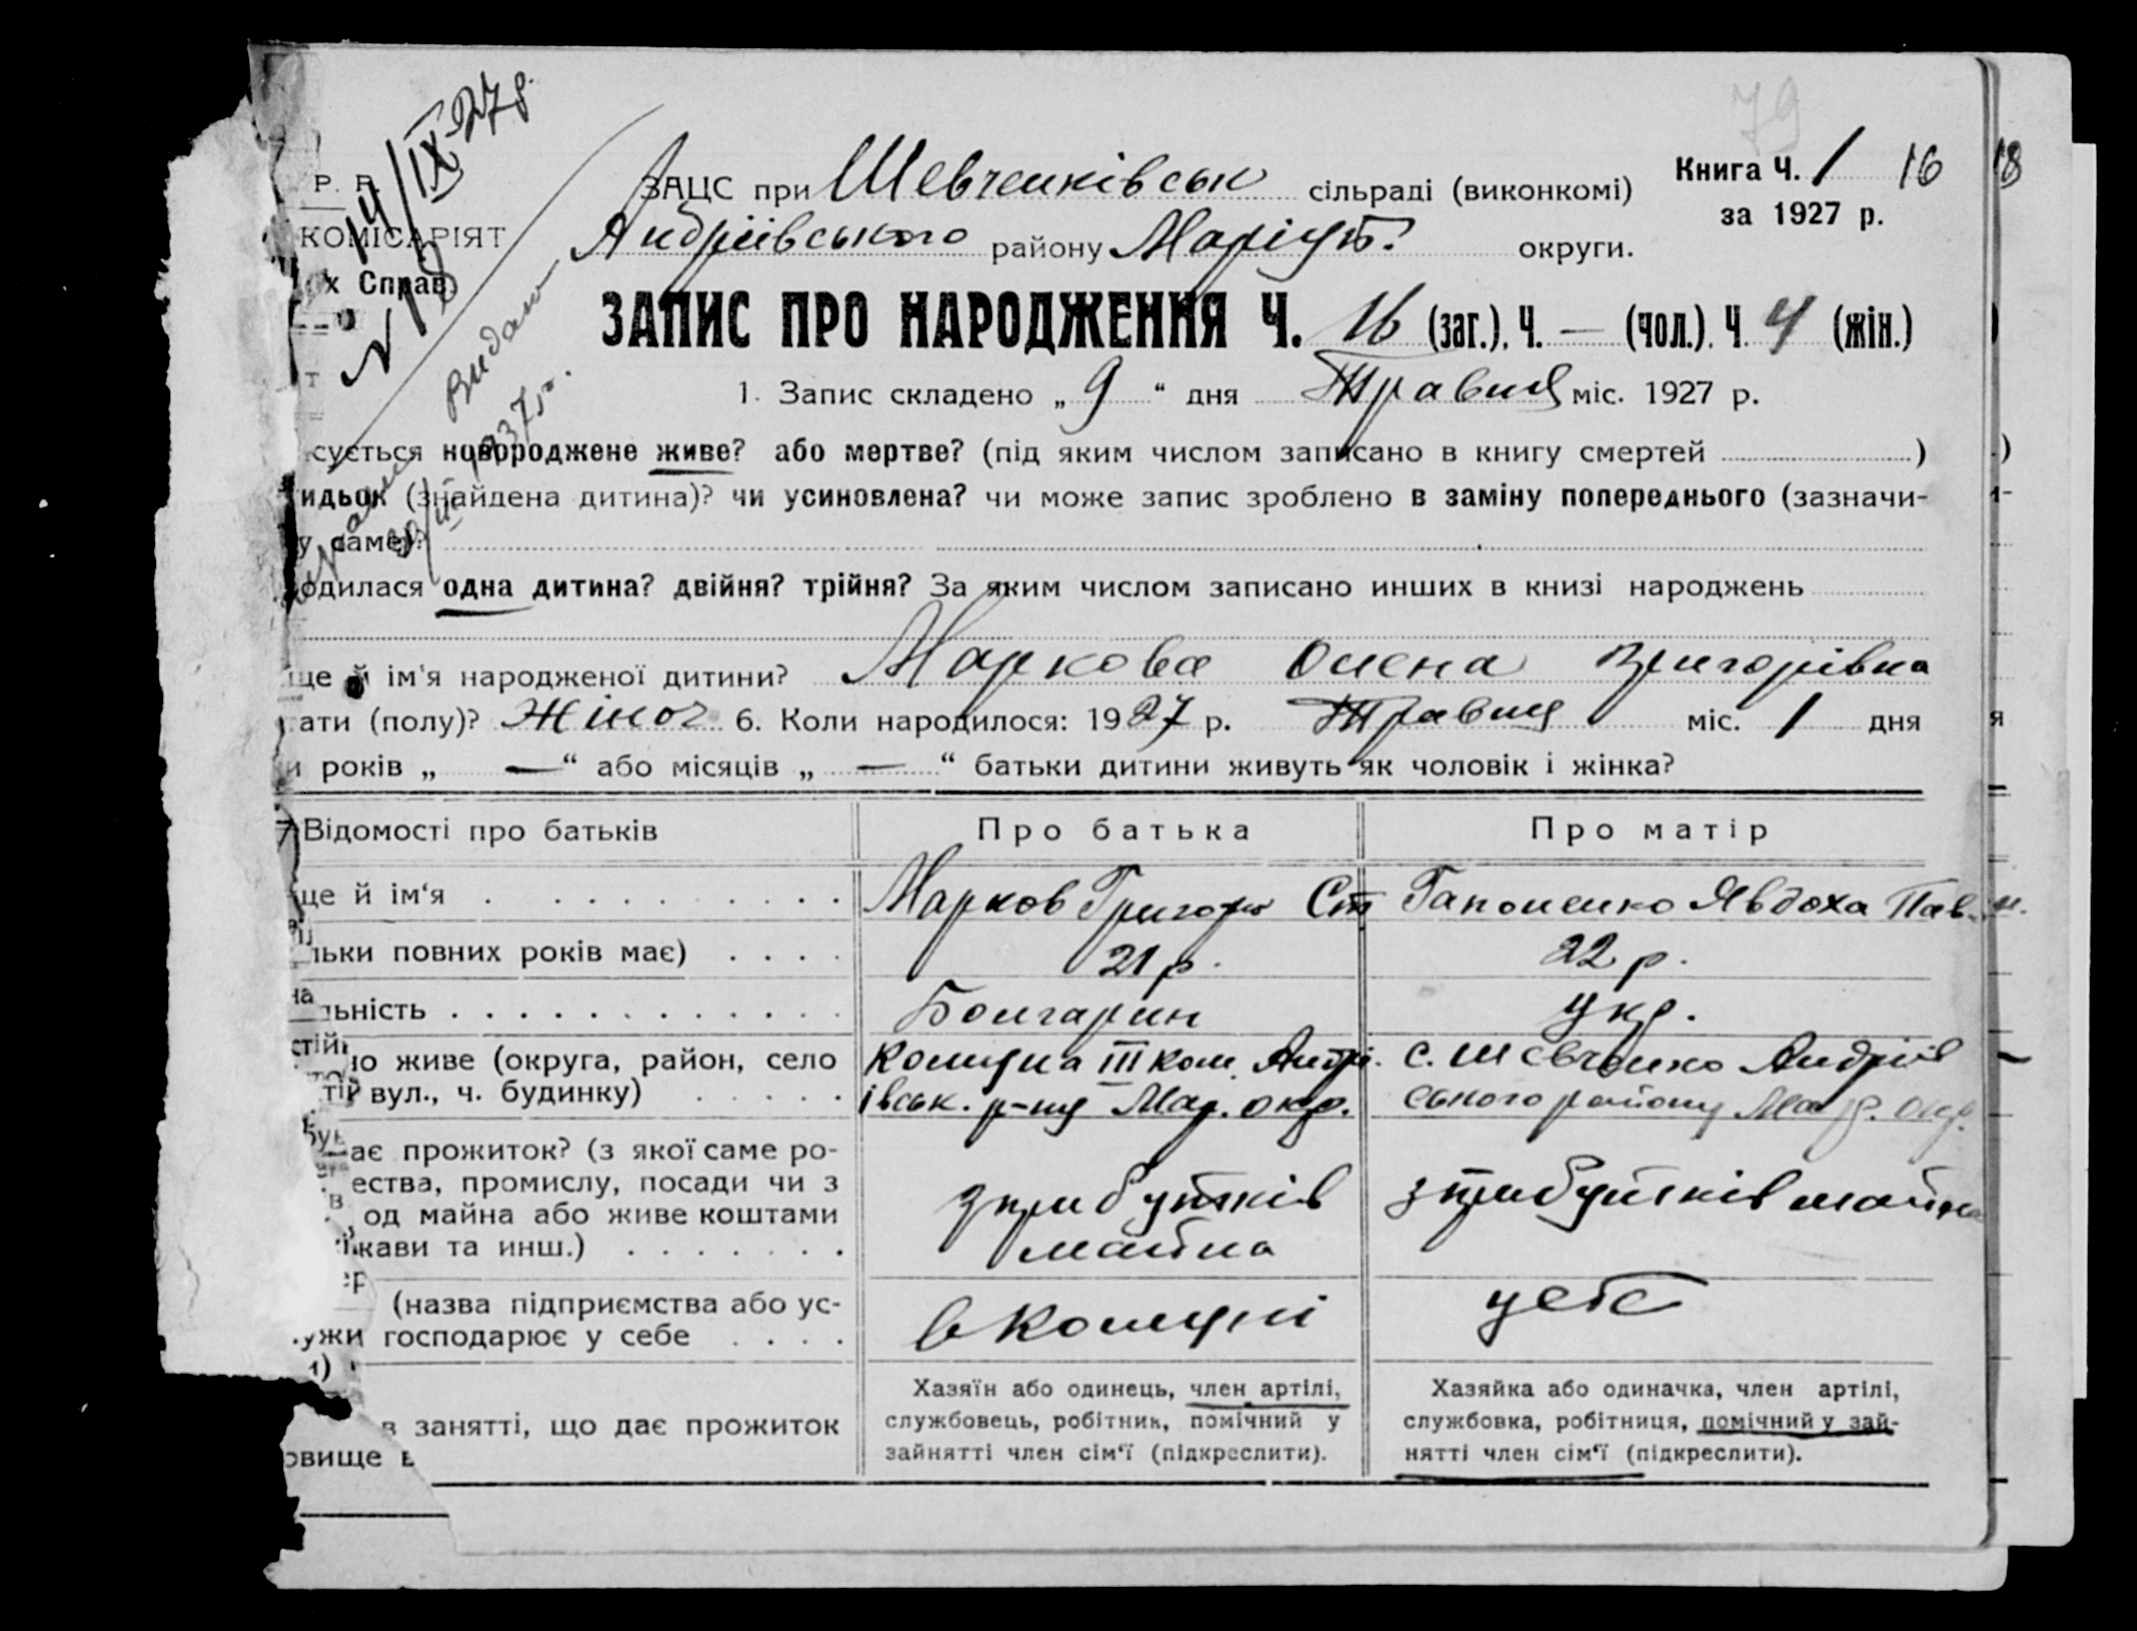 79
14/IX 27р.
N 18
Видано
1937 г.
Р. Р.
КОМІСАРІЯТ
х Справ.
ЗАЦС при Шевченківськ сільраді (виконкомі)
Книга Ч. 1 16 18
за 1927 р.
Андріївського району Маріуп. округи.
ЗАПИС ПРО НАРОДЖЕННЯ Ч. 16 (заг.). Ч. — (чол.). Ч. 4 (жін.)
1. Запис складено „ 9 “ дня Травня міс. 1927 р.
сується новороджене живе? або мертве? (під яким числом записано в книгу смертей )
идьок (знайдена дитина)? чи усиновлена? чи може запис зроблено в заміну попереднього (зазначи-
у саме)?
одилася одна дитина? двійня? трійня? За яким числом записано инших в книзі народжень
ще й ім'я народженої дитини? Маркова Олена Григорівна
ати (полу)? Жіноч 6. Коли народилося: 1927 р. Травня міс. 1 дня
и років „ — “ або місяців „ — “ батьки дитини живуть як чоловік і жінка?
7 Відомості про батьків Про батька Про матір
ще й ім‘я Марков Григорій Ст Гапоненко Явдоха Пав.
льки повних років має) 21 р. 22 р.
льність Болгарин укр.
но живе (округа, район, село Комуна III Ком. Андрі- с. Шевченко Андріїв
вул., ч. будинку) івськ. р-ну Мар. окр. ського району Мар. окр.
ає прожиток? (з якої саме ро-
ества, промислу, посади чи з з прибутків з прибутків майна
од майна або живе коштами
кави та инш.) майна
(назва підприємства або ус-
ужи господарює у себе в Комуні у себе
в занятті, що дає прожиток
овище в
Хазяїн або одинець, член артілі,
службовець, робітник, помічний у
зайнятті член сім‘ї (підкреслити).
Хазяйка або одиначка, член артілі,
службовка, робітниця, помічний у зай-
нятті член сім‘ї (підкреслити).